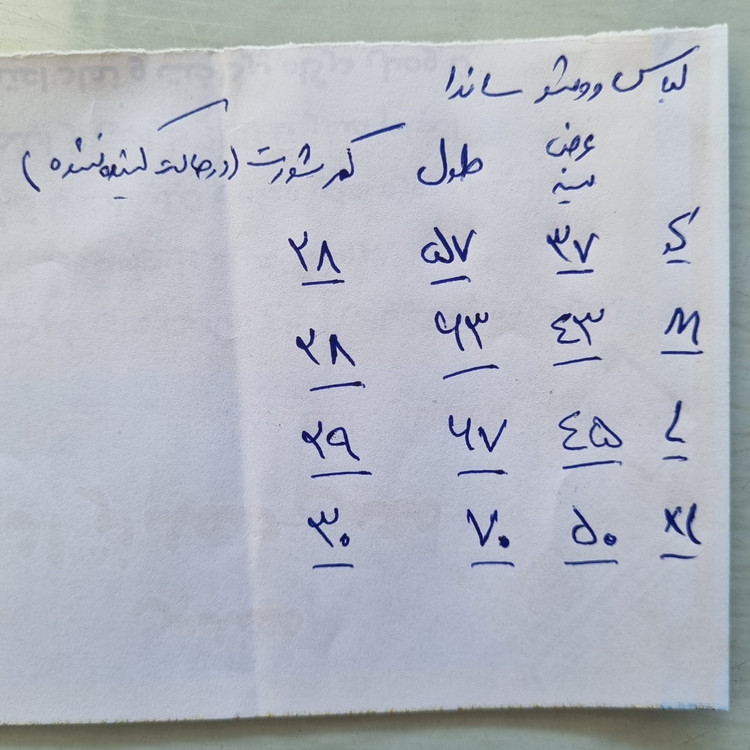 لباس ووشو ساندا
عرض سینه طول کمر شورت (در حالت کشیده نشده)
S ۳۷ ۵۷ ۲۸
M ۴۳ ۶۳ ۲۸
L ۴۵ ۶۷ ۲۹
XL ۵۰ ۷۰ ۳۰